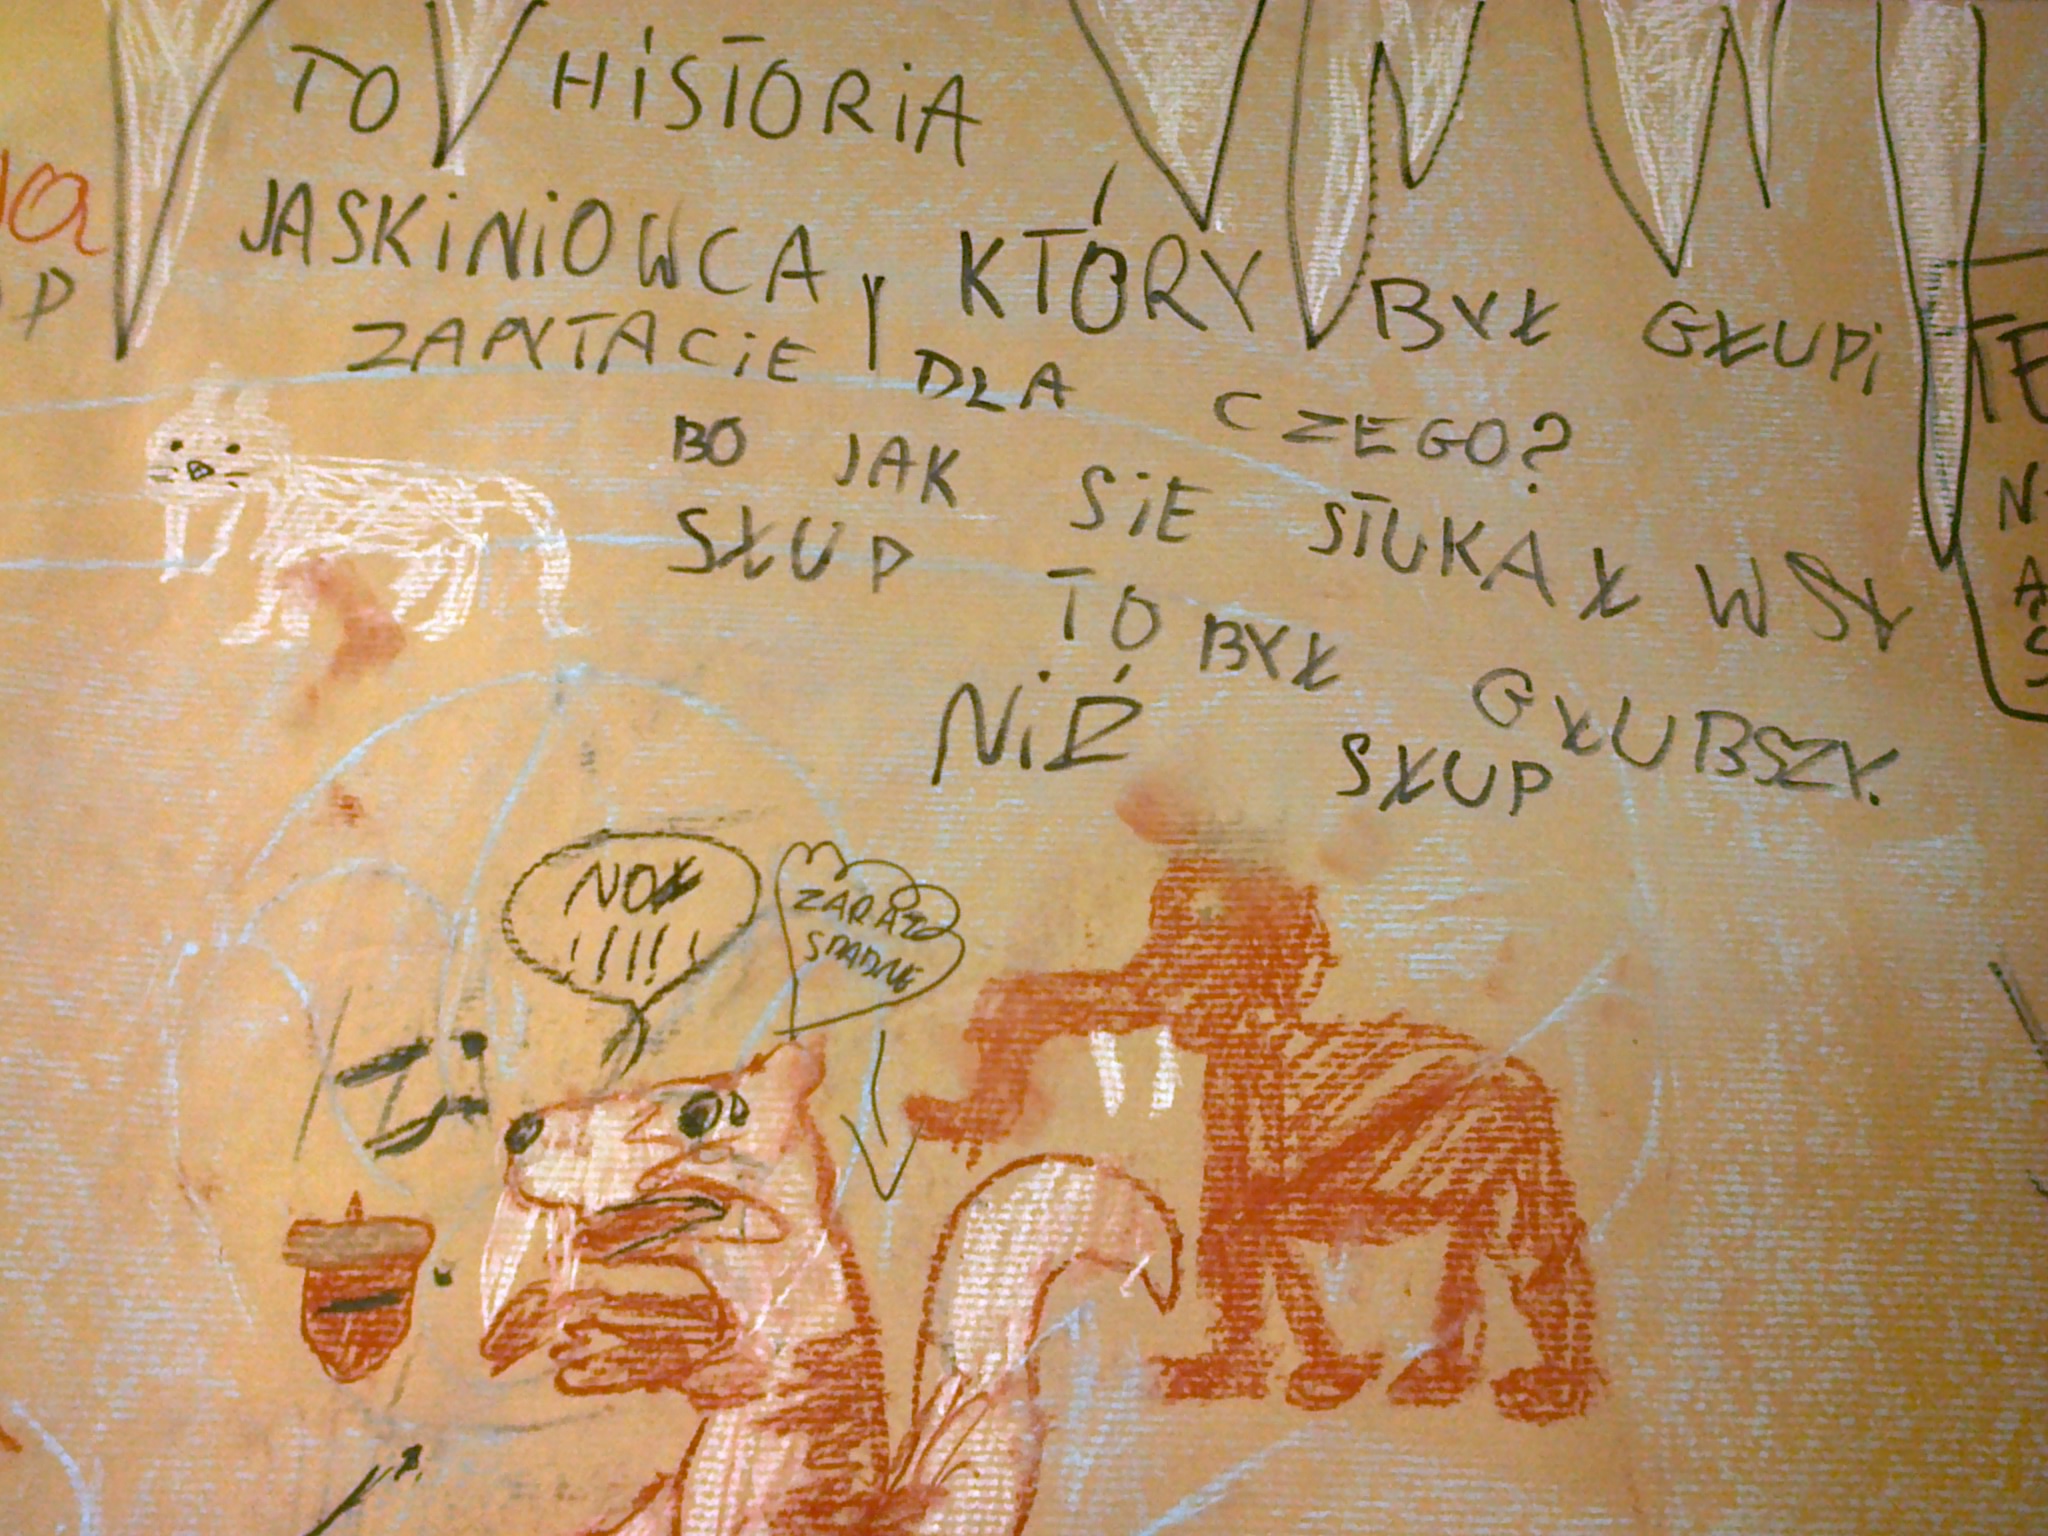 TO HiSTORiA
JASKiNiOWCA, KTÓRY BYŁ GŁUPi
ZAPYTACiE DLA CZEGO?
BO JAK SiE STUKAŁ W SŁ
SŁUP TO BYŁ GŁUBSZY.
NiŹ SŁUP
NOŁ
!!!!!
ZARAZ
SPADNE